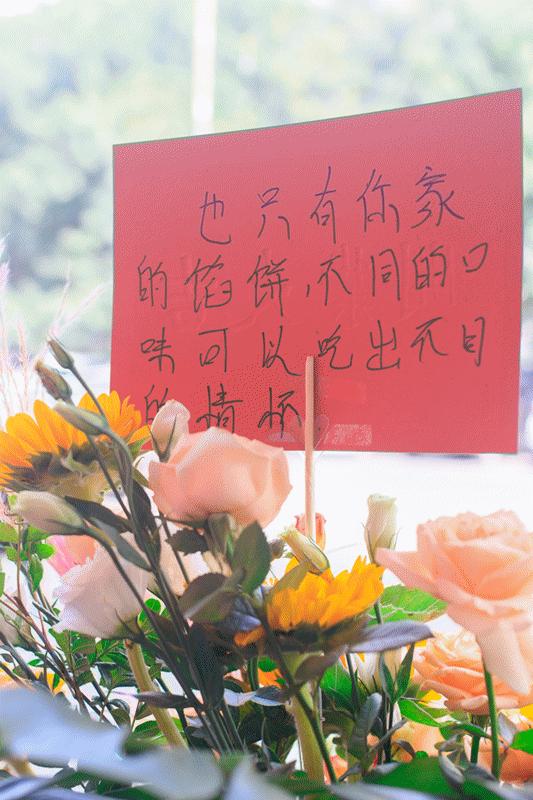 也只有你家
的馅饼,不同的口
味可以吃出不同
的情怀